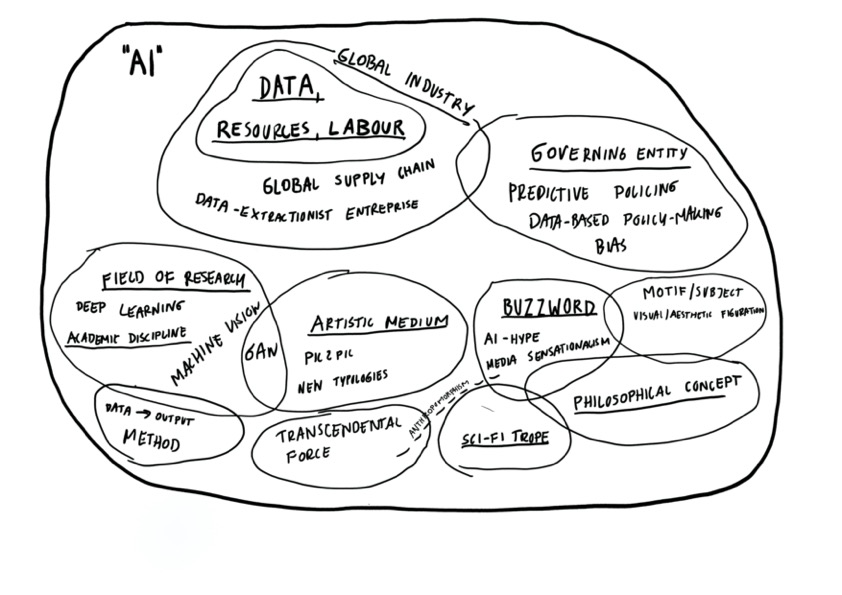 "AI"
GLOBAL INDUSTRY
DATA,
RESOURCES, LABOUR
GLOBAL SUPPLY CHAIN
DATA-EXTRACTIONIST ENTREPRISE
GOVERNING ENTITY
PREDICTIVE POLICING
DATA-BASED POLICY-MAKING
BIAS
FIELD OF RESEARCH
DEEP LEARNING
ACADEMIC DISCIPLINE
MACHINE VISION
GAN
ARTISTIC MEDIUM
PIC2PIC
NEW TYPOLOGIES
BUZZWORD
AI-HYPE
MEDIA SENSATIONALISM
MOTIF/SUBJECT
VISUAL/AESTHETIC FIGURATION
PHILOSOPHICAL CONCEPT
DATA → OUTPUT
METHOD
TRANSCENDENTAL
FORCE
ANTHROPOMORPHISM
SCI-FI TROPE